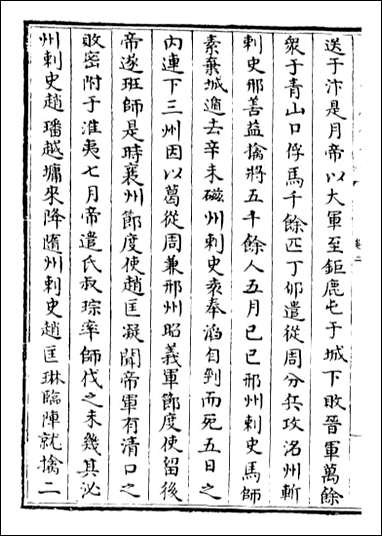 送于汴是月帝以大軍至鉅鹿屯于城下敗晉軍萬餘
衆于青山口俘馬千餘匹丁卯遣從周分兵攻洺州斬
刺史邢善益擒將五千餘人五月己巳邢州刺史馬師
素棄城遁去辛未磁州刺史袁奉滔自剄而死五日之
内連下三州因以葛從周兼邢州昭義軍節度使留後
帝遂班師是時襄州節度使趙匡凝聞帝軍有清口之
敗密附于淮夷七月帝遣氏叔琮率師伐之未幾其泌
州刺史趙璠越墉來降隨州刺史趙匡琳臨陣就擒二